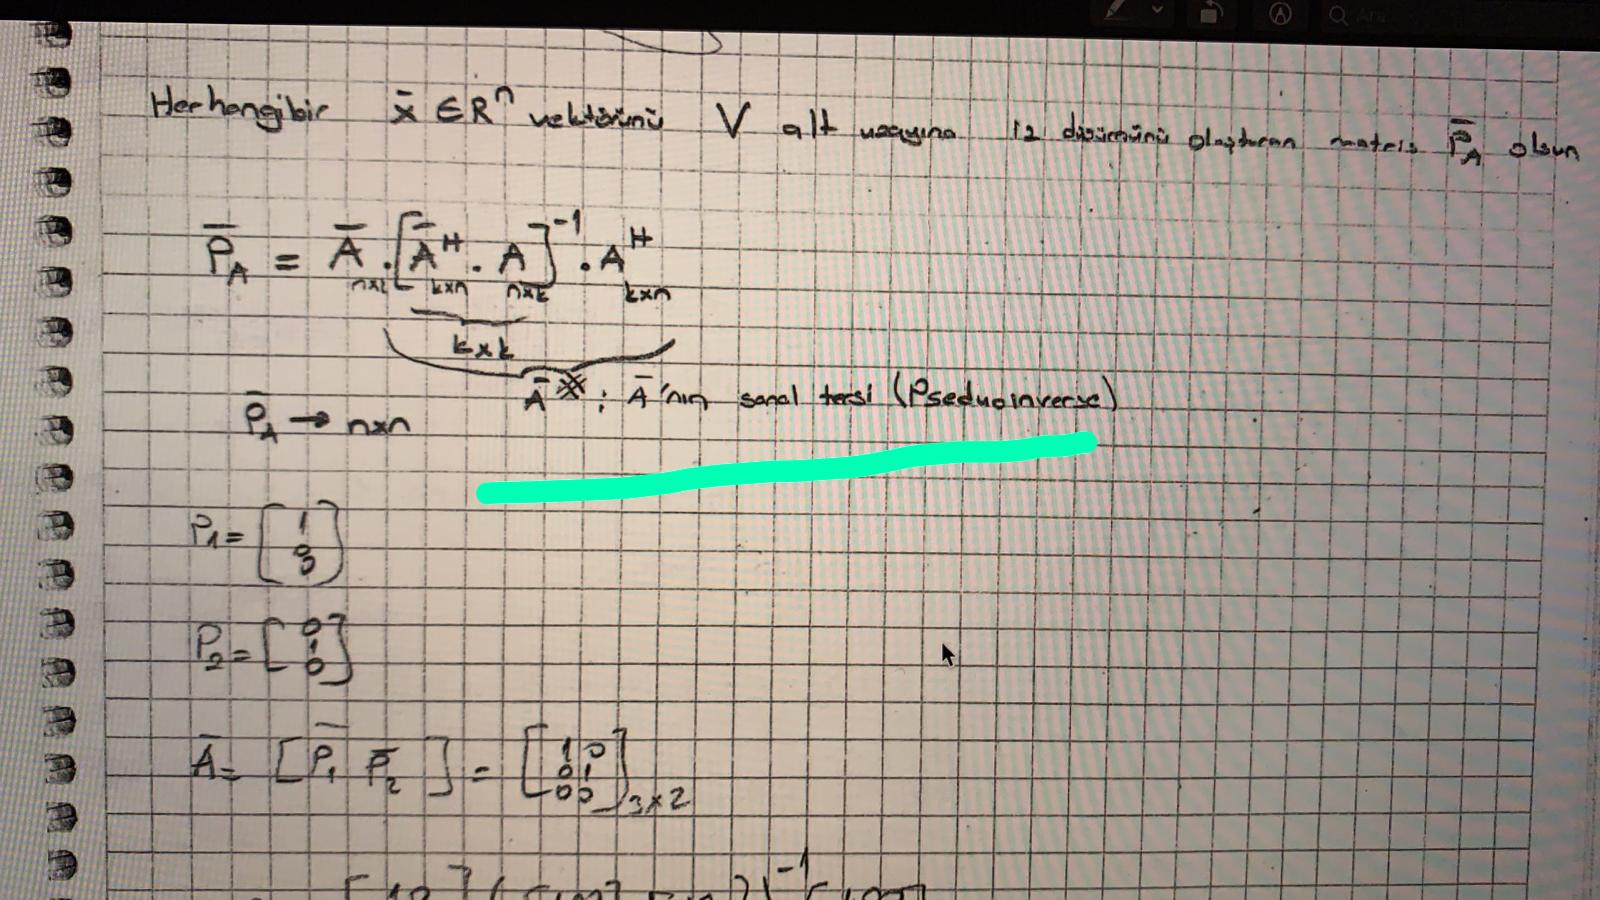 Herhangibir x̄ ∈ Rⁿ vektörünü V alt uzayına iz düşümünü oluşturan matris P̄_A olsun
P̄_A = Ā . [Ā^H . A]^-1 . A^H
nxk kxn nxk kxn
kxk
Ā^* : Ā'nın sanal tersi (Pseduoinverse)
P̄_A → nxn
P₁ = [1 0 0]
P₂ = [0 1 0]
Ā = [P̄₁ P̄₂] = [1 0
0 1
0 0] 3x2